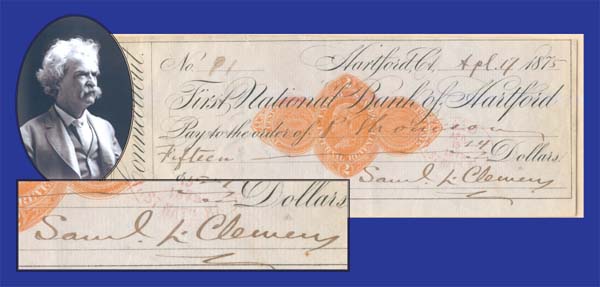 No. 91 Hartford, Ct. Apl. 1875
First National Bank of Hartford
Pay to the order of
Fifteen 14 Dollars
Saml. L. Clemens
Dollars
Saml. L. Clemens